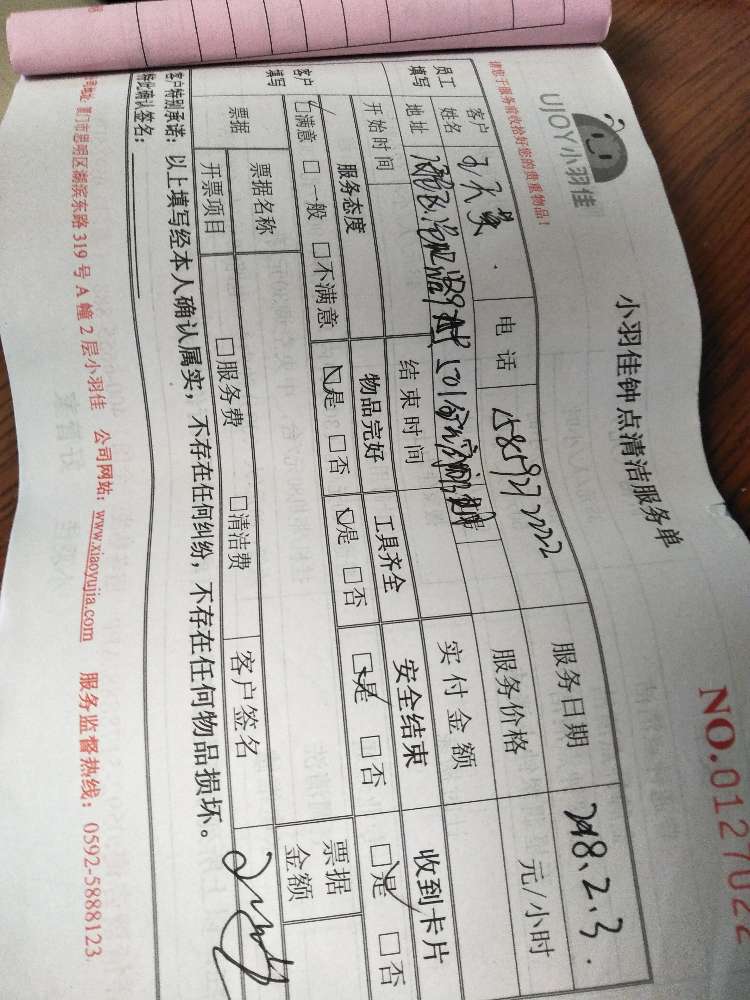 UJOY小羽佳
请您于服务前收拾好您的贵重物品！
小羽佳钟点清洁服务单
NO.0127022
员工填写
客户姓名
电话
服务日期 2018.2.3.
地址
服务价格 元/小时
开始时间
结束时间
实付金额
客户填写
服务态度 物品完好 工具齐全 安全结束 收到卡片
☑满意 □一般 □不满意 ☑是 □否 ☑是 □否 ☑是 □否 ☑是 □否
票据
票据名称
票据金额
开票项目 □服务费 □清洁费
客户签名
客户特别承诺：以上填写经本人确认属实，不存在任何纠纷，不存在任何物品损坏。
特此确认签名：
公司地址：厦门市思明区湖滨东路319号A幢2层小羽佳 公司网站：www.xiaoyujia.com 服务监督热线：0592-5888123